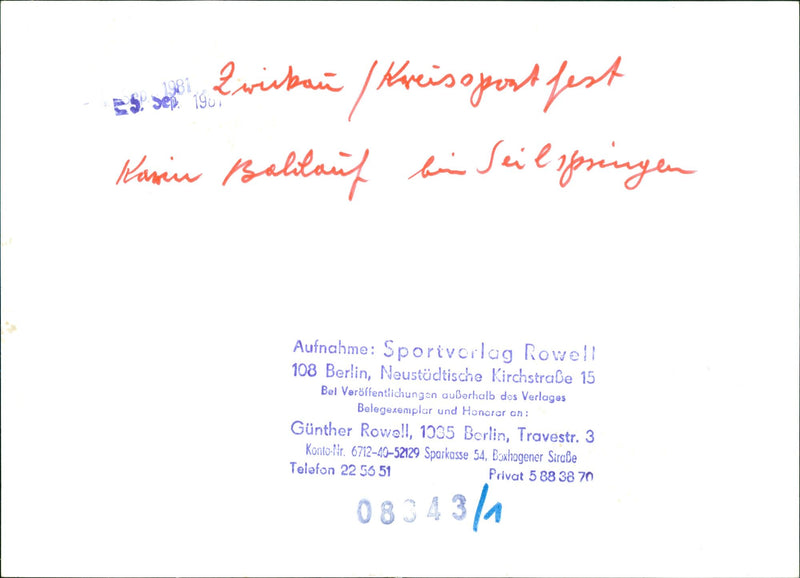 Zwickau / Kreissportfest
Sep. 1981
25. Sep. 1981
Karin beim Seilspringen
Aufnahme: Sportverlag Rowell
108 Berlin, Neustädtische Kirchstraße 15
Bei Veröffentlichungen außerhalb des Verlages
Belegexemplar und Honorar an:
Günther Rowell, 1035 Berlin, Travestr. 3
Konto-Nr. 6712-40-52129 Sparkasse 54, Boxhagener Straße
Telefon 22 56 51 Privat 5 88 38 70
08343/1